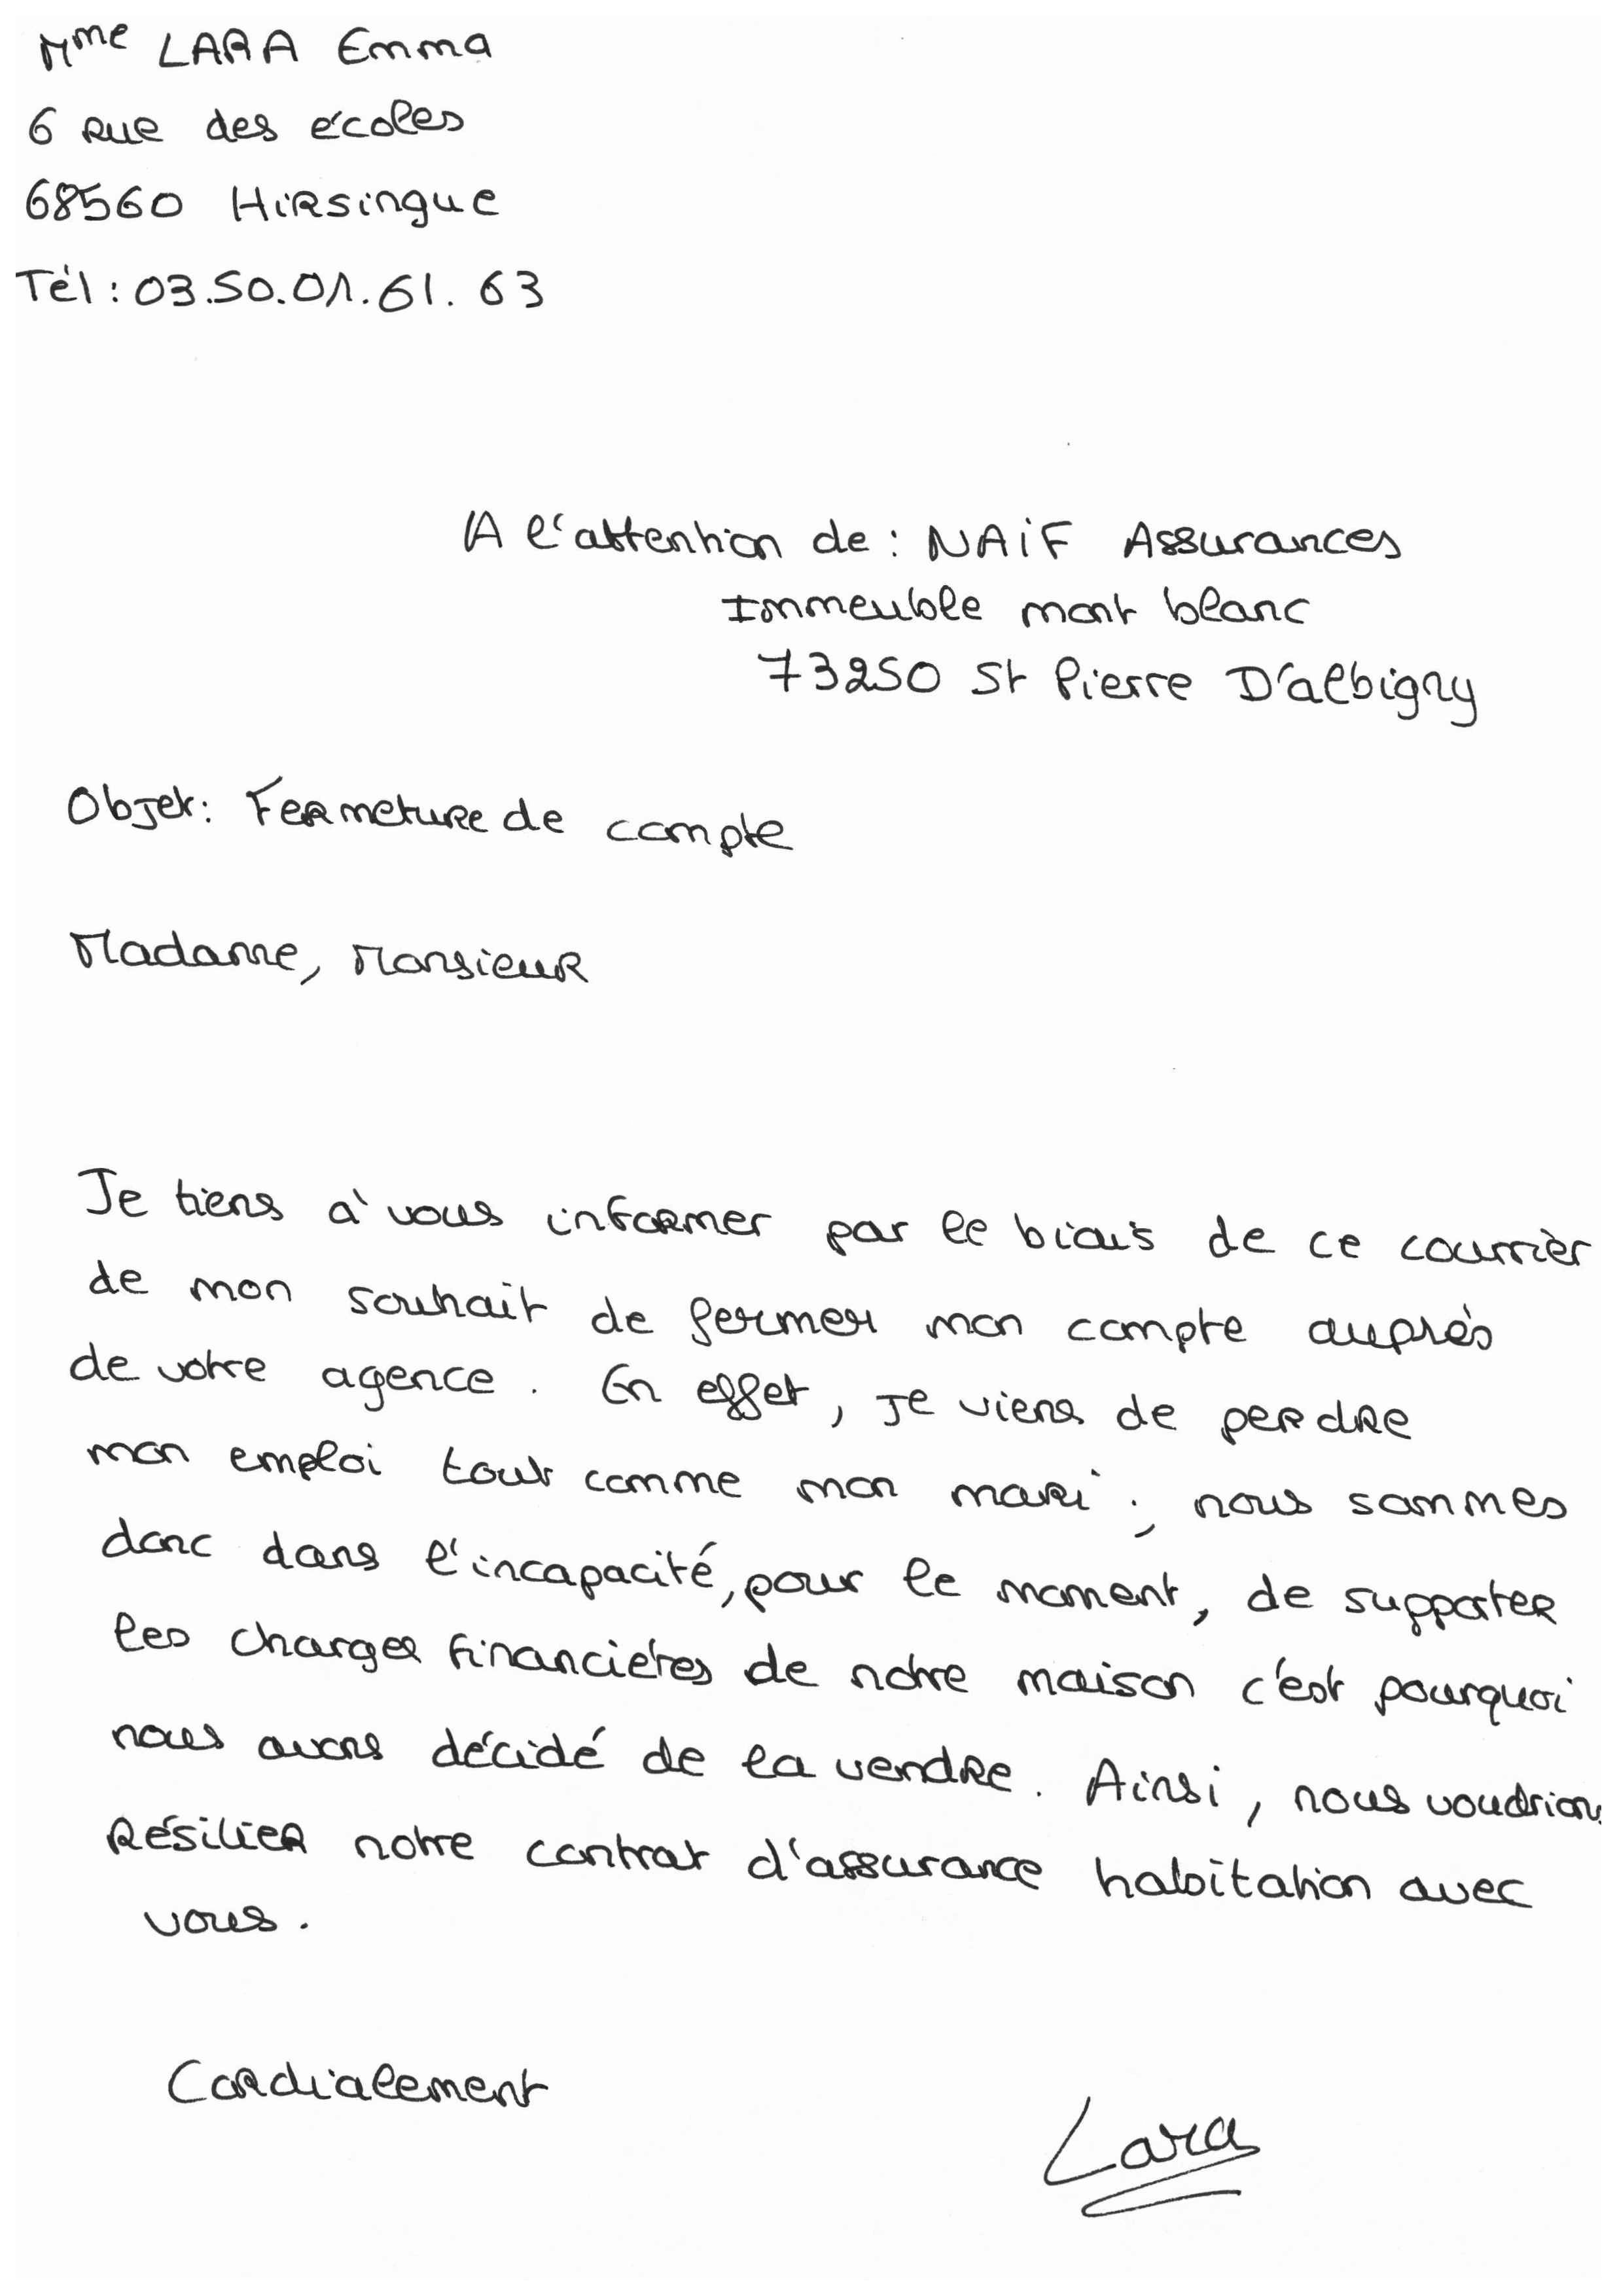 Mme LARA Emma
6 rue des écoles
68560 Hirsingue
Tél : 03.50.01.61.63
A l'attention de : NAiF Assurances
Immeuble mont blanc
73250 St Pierre D'albigny
Objet : Fermeture de compte
Madame, Monsieur
Je tiens à vous informer par le biais de ce courrier
de mon souhait de fermer mon compte auprès
de votre agence. En effet, je viens de perdre
mon emploi tout comme mon mari ; nous sommes
donc dans l'incapacité, pour le moment, de supporter
les charges financières de notre maison c'est pourquoi
nous avons décidé de la vendre. Ainsi, nous voudrions
résilier notre contrat d'assurance habitation avec
vous.
Cordialement
Lara